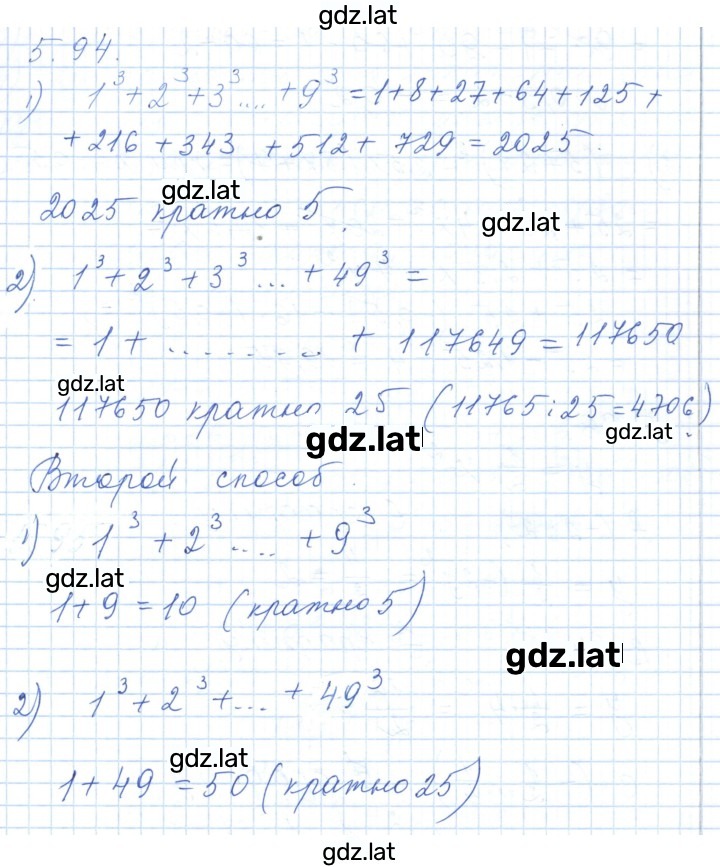 gdz.lat
5.94.
1) 1³+2³+3³....+9³=1+8+27+64+125+
+216+343+512+729=2025.
gdz.lat
2025 кратно 5.
gdz.lat
2) 1³+2³+3³...+49³=
=1+.........+117649=117650
gdz.lat
117650 кратно 25 (11765:25=4706)
gdz.lat
gdz.lat
Второй способ.
1) 1³+2³....+9³
gdz.lat
1+9=10 (кратно 5)
gdz.lat
2) 1³+2³+...+49³
gdz.lat
1+49=50 (кратно 25)
gdz.lat